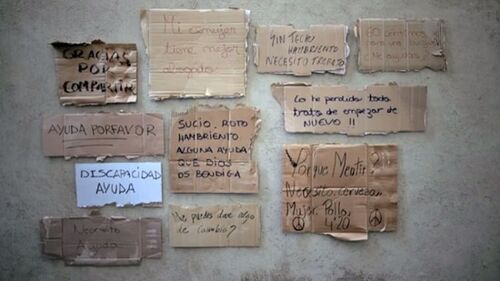 GRACIAS
POR
COMPARTIR
Mi
tiene mejor
abogado
SIN TECHO
HAMBRIENTO
NECESITO TRABAJO
60 centimos
para una
Me ayudas
AYUDA PORFAVOR
SUCIO, ROTO
HAMBRIENTO
ALGUNA AYUDA
QUE DIOS
OS BENDIGA
Lo he perdido todo
trato de empezar de
NUEVO !!
DISCAPACIDAD
AYUDA
Me puedes dar algo
de cambio?
Porque Mentir?
Necesito Cerveza,
Mujer. Pollo,
4'20
Necesito
Ayuda